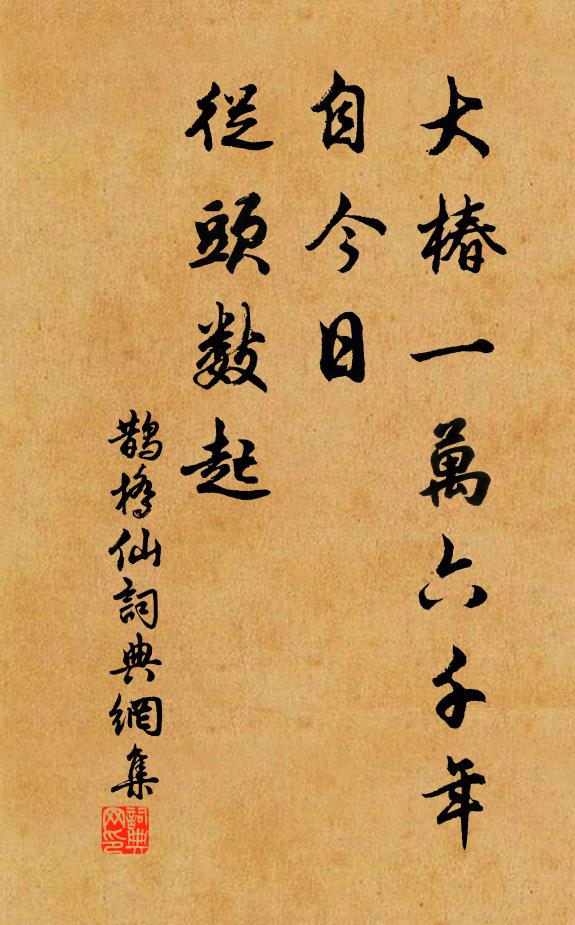 大椿一萬六千年
自今日
從頭数起
鵲橋仙詞典網集
詞典
网印